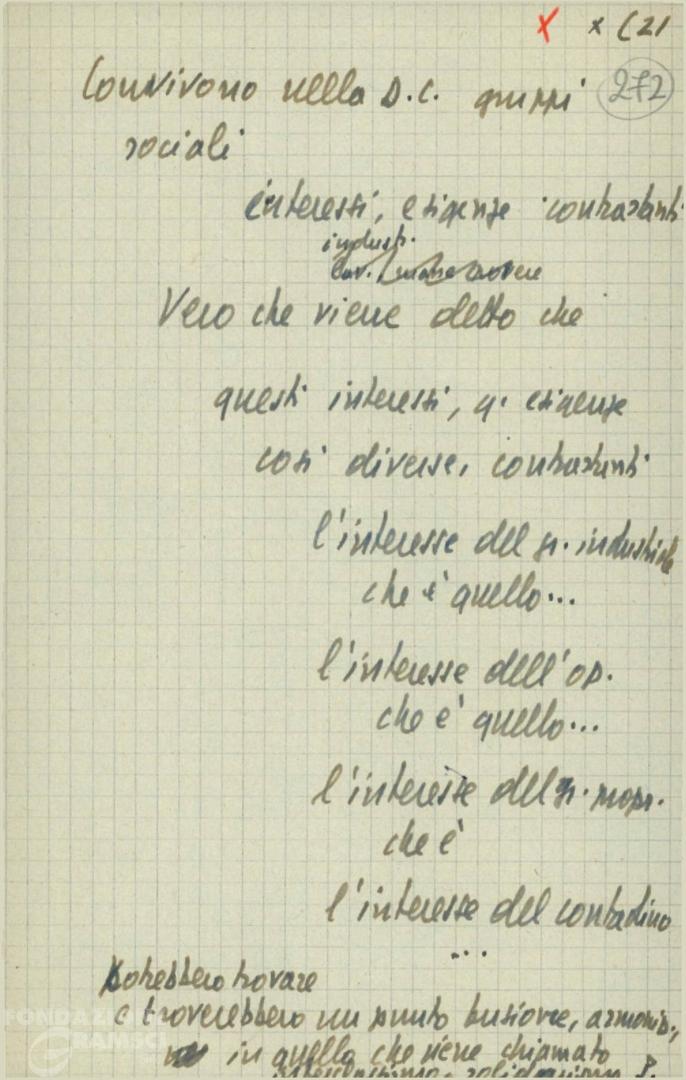 x x (21
272
Convivono nella D.C. gruppi
sociali
interessi, esigenze contrastanti
industr.
lav.
Vero che viene detto che
questi interessi, q. esigenze
così diverse, contrastanti
l'interesse del gr. industriale
che è quello...
l'interesse dell'op.
che e' quello...
l'interesse del gr. propr.
che e'
l'interesse del contadino
...
potrebbero trovare
e troverebbero un punto fusione, armonia,
in quello che viene chiamato
interclassismo - solidarismo
FONDAZIONE
GRAMSCI